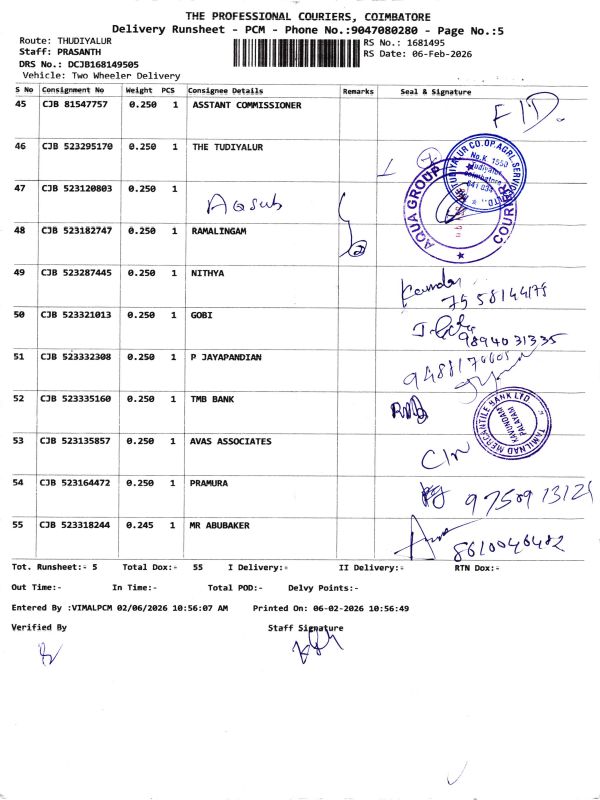 THE PROFESSIONAL COURIERS, COIMBATORE
Delivery Runsheet - PCM - Phone No.:9047080280 - Page No.:5
Route: THUDIYALUR
RS No.: 1681495
Staff: PRASANTH
RS Date: 06-Feb-2026
DRS No.: DCJB168149505
Vehicle: Two Wheeler Delivery
S No Consignment No Weight PCS Consignee Details Remarks Seal & Signature
45 CJB 81547757 0.250 1 ASSTANT COMMISSIONER
46 CJB 523295170 0.250 1 THE TUDIYALUR
TUDIYALUR CO.OP.AGRL.SERVICE
No.K. 1550
Tudiyalur
Coimbatore
641 034
47 CJB 523120803 0.250 1
AQUA GROUP
COURIER
48 CJB 523182747 0.250 1 RAMALINGAM
49 CJB 523287445 0.250 1 NITHYA
50 CJB 523321013 0.250 1 GOBI
9894031335
51 CJB 523332308 0.250 1 P JAYAPANDIAN
52 CJB 523335160 0.250 1 TMB BANK
TAMILNAD MERCANTILE BANK LTD
KAVUNDAM
PALAYAM
53 CJB 523135857 0.250 1 AVAS ASSOCIATES
54 CJB 523164472 0.250 1 PRAMURA
55 CJB 523318244 0.245 1 MR ABUBAKER
Tot. Runsheet:- 5 Total Dox:- 55 I Delivery:- II Delivery:- RTN Dox:-
Out Time:- In Time:- Total POD:- Delvy Points:-
Entered By :VIMALPCM 02/06/2026 10:56:07 AM Printed On: 06-02-2026 10:56:49
Verified By Staff Signature